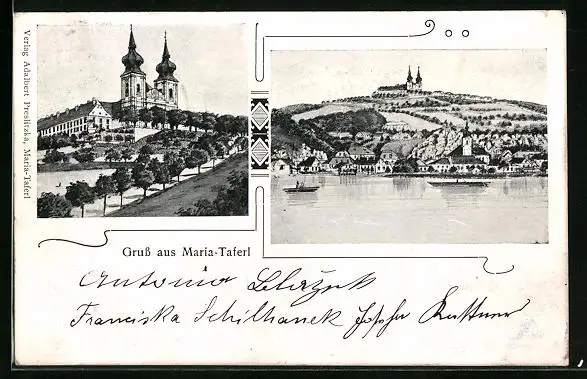 Verlag Adalbert Preslitzka, Maria-Taferl
Gruß aus Maria-Taferl
Antonia Blažek
Franciska Schilhanek Josefa